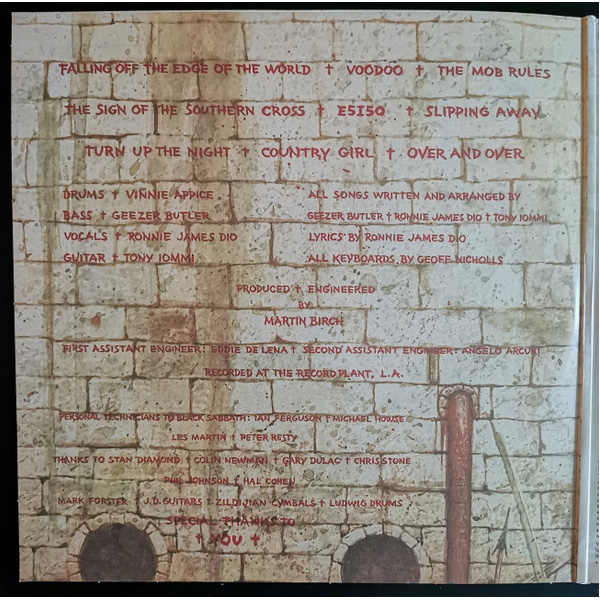 FALLING OFF THE EDGE OF THE WORLD † VOODOO † THE MOB RULES
THE SIGN OF THE SOUTHERN CROSS † E5150 † SLIPPING AWAY
TURN UP THE NIGHT † COUNTRY GIRL † OVER AND OVER
DRUMS † VINNIE APPICE
BASS † GEEZER BUTLER
VOCALS † RONNIE JAMES DIO
GUITAR † TONY IOMMI
ALL SONGS WRITTEN AND ARRANGED BY
GEEZER BUTLER † RONNIE JAMES DIO † TONY IOMMI
LYRICS BY RONNIE JAMES DIO
ALL KEYBOARDS BY GEOFF NICHOLLS
PRODUCED † ENGINEERED
BY
MARTIN BIRCH
FIRST ASSISTANT ENGINEER: EDDIE DE LENA † SECOND ASSISTANT ENGINEER: ANGELO ARCURI
RECORDED AT THE RECORD PLANT, L.A.
PERSONAL TECHNICIANS TO BLACK SABBATH: IAN FERGUSON † MICHAEL HOWSE
LES MARTIN † PETER RESTY
THANKS TO STAN DIAMOND † COLIN NEWMAN † GARY DULAC † CHRIS STONE
PHIL JOHNSON † HAL COHEN
MARK FORSTER † J.D. GUITARS † ZILDIJIAN CYMBALS † LUDWIG DRUMS
SPECIAL THANKS TO
† YOU †